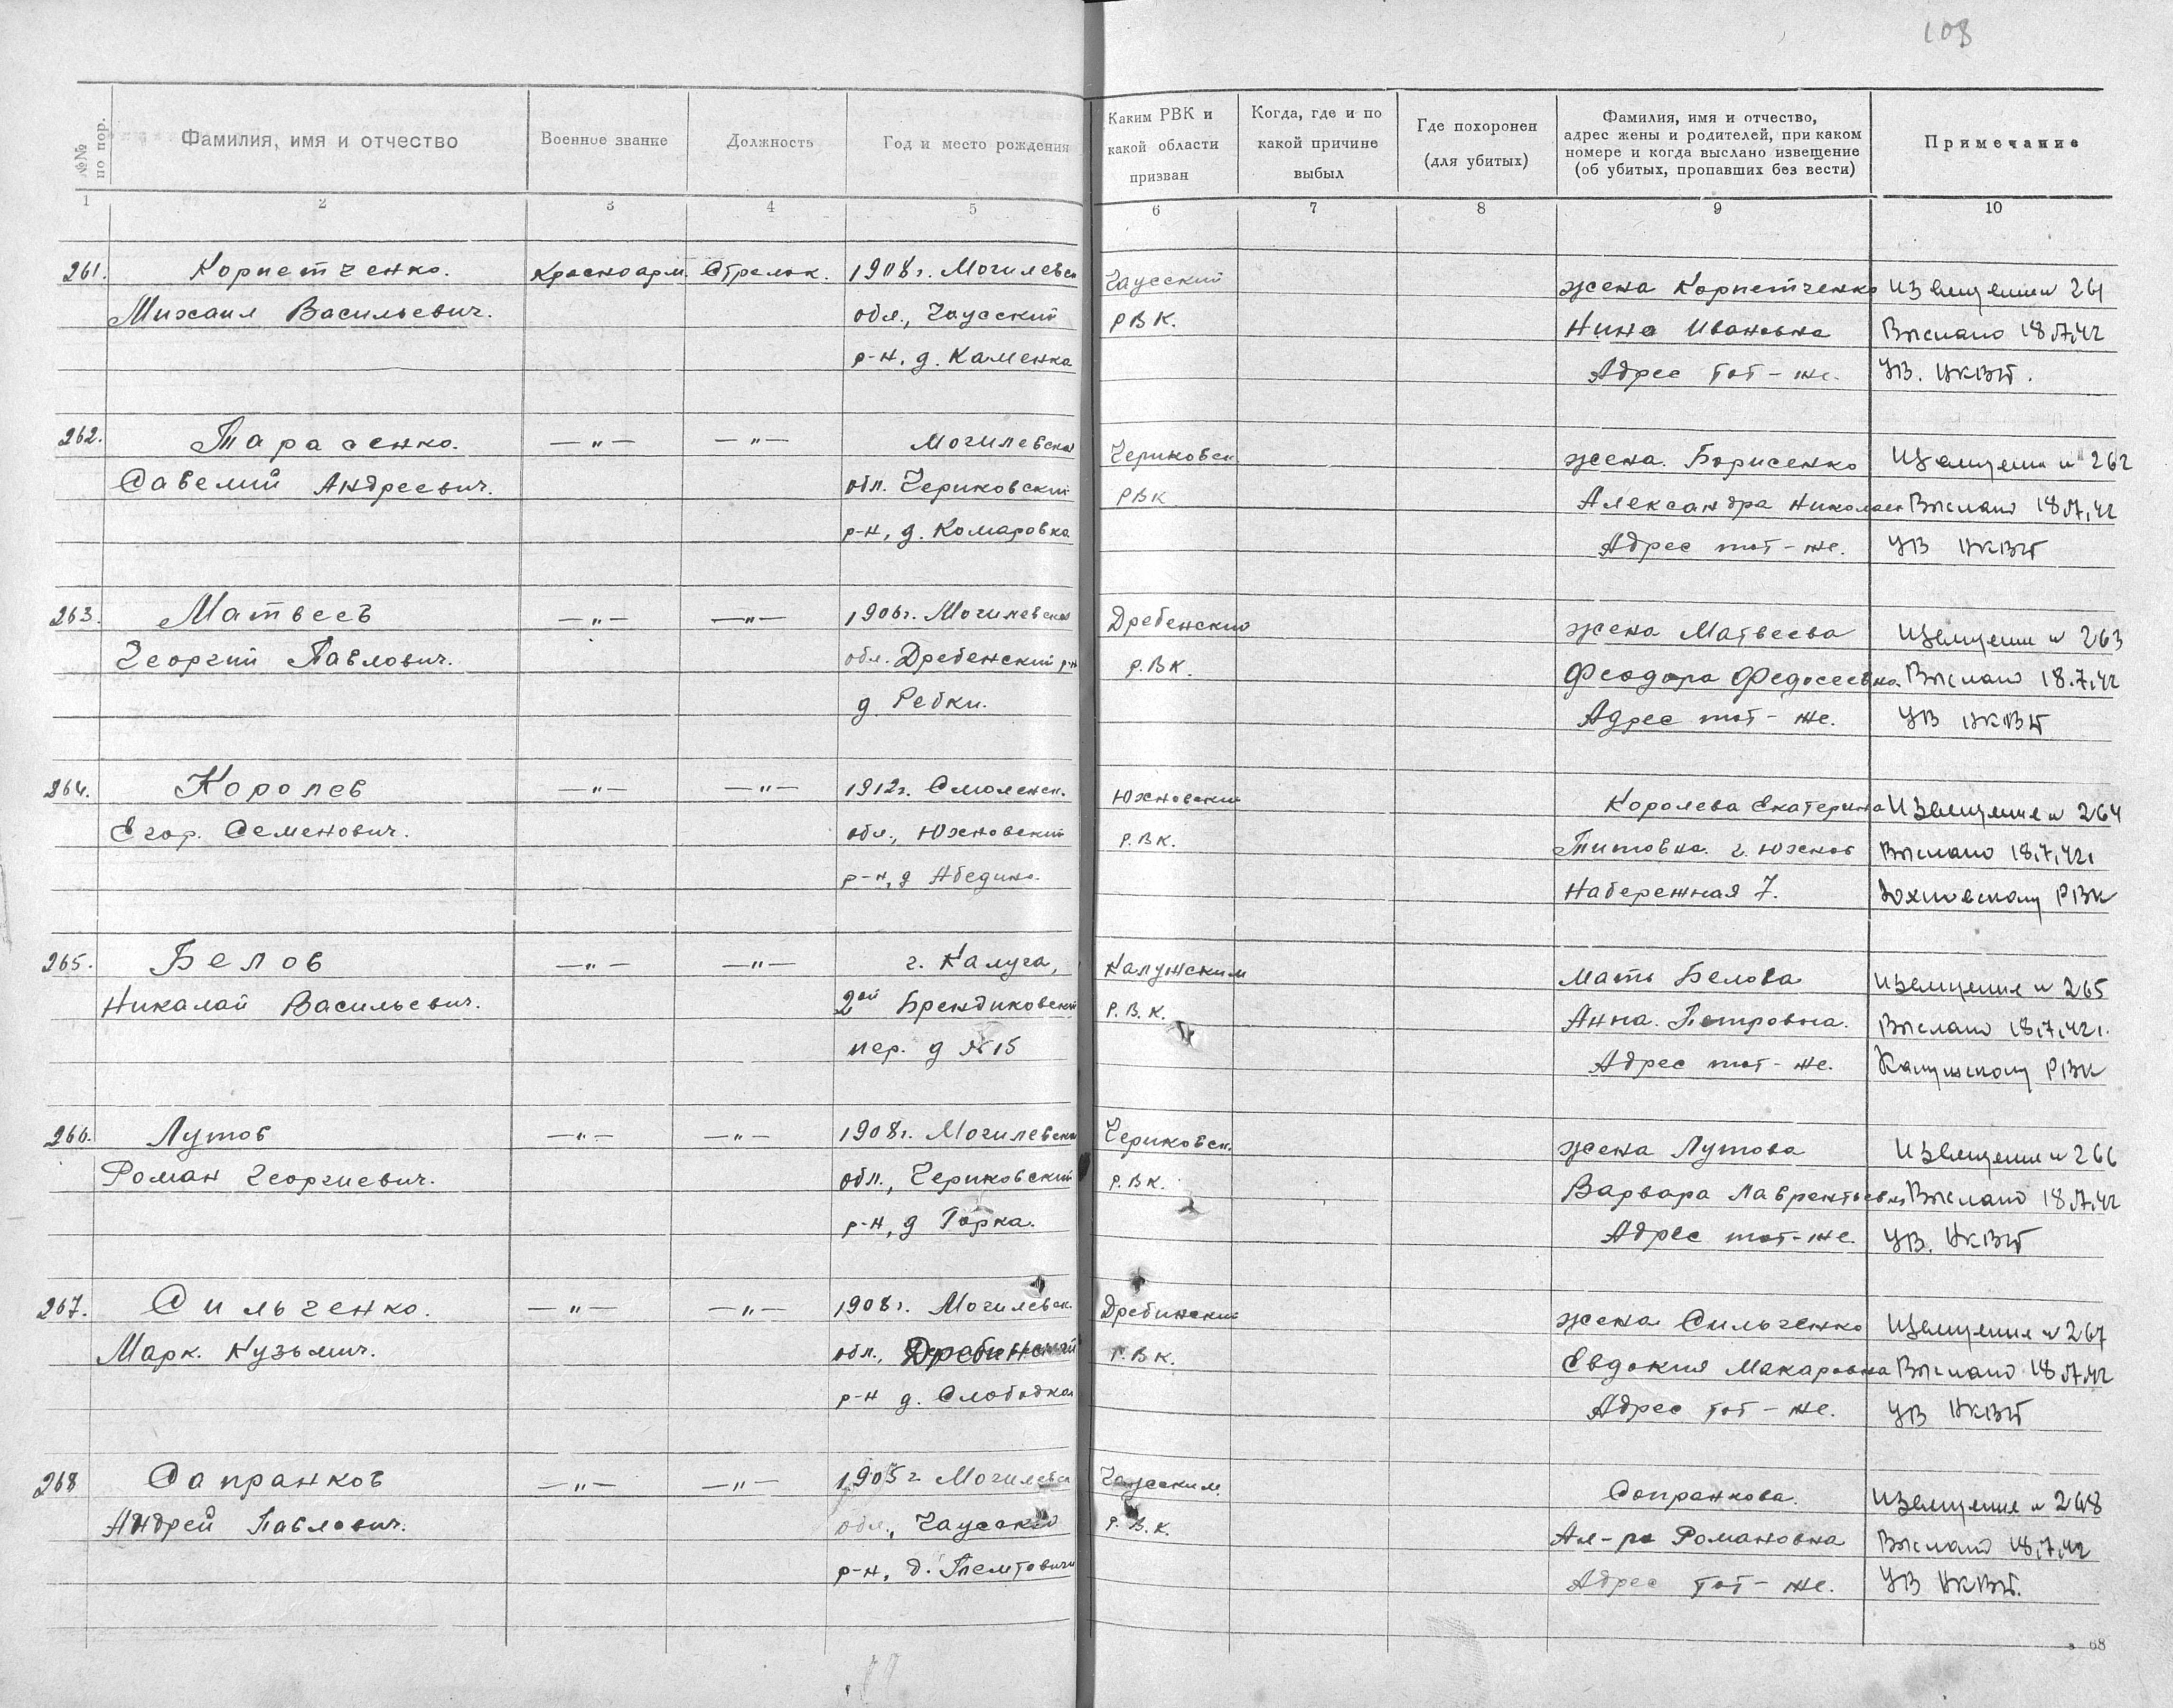 108
№№ по пор.
Фамилия, имя и отчество
Военное звание
Должность
Год и место рождения
Каким РВК и какой области призван
Когда, где и по какой причине выбыл
Где похоронен (для убитых)
Фамилия, имя и отчество, адрес жены и родителей, при каком номере и когда выслано извещение (об убитых, пропавших без вести)
Примечание
1 2 3 4 5 6 7 8 9 10
261. Корпетченко. Красноарм. Стрелок. 1908 г. Могилевск Чаусский жена Корпетченко Извещение № 261
Михаил Васильевич. обл., Чаусский РВК. Нина Ивановна Выслано 18.7.42
р-н, д. Каменка Адрес тот-же. УВ.
262. Тарасенко. —„— —„— Могилевская Чериковск жена. Борисенко Извещение № 262
Савелий Андреевич. обл. Чериковский РВК Александра Николаев Выслано 18.7.42
р-н, д. Комаровка Адрес тот-же. УВ
263. Матвеев —„— —„— 1906 г. Могилевская Дребенский жена Матвеева Извещение № 263
Георгий Павлович. обл. Дребенский р-н Р.ВК. Феодора Федосеевна. Выслано 18.7.42
д. Ребки. Адрес тот-же. УВ
264. Королев —„— —„— 1912 г. Смоленск. Юхновский Королева Екатерина Извещение № 264
Егор. Семенович. обл., Юхновский Р.ВК. Титовна. г. Юхнов Выслано 18.7.42 г.
р-н, д Абедино. Набережная 7. Юхновскому РВК
265. Белов —„— —„— г. Калуга, Калужским Мать Белова Извещение № 265
Никалай Васильевич. 2ой Брендиковский Р.В.К. Анна. Петровна. Выслано 18.7.42 г.
пер. д № 15 Адрес тот-же. Калужскому РВК
266. Лутов —„— —„— 1908 г. Могилевск Чериковск. жена Лутова Извещение № 266
Роман Георгиевич. обл., Чериковский Р.ВК. Варвара Лаврентьевна Выслано 18.7.42
р-н, д Горка. Адрес тот-же. УВ.
267. Сильченко. —„— —„— 1908 г. Могилевск. Дребинский жена Сильченко Извещение № 267
Марк. Кузьмич. обл., Дребинский Р.ВК. Евдокия Макаровна Выслано 18.7.42
р-н д. Слободка Адрес тот-же. УВ
268 Сапранков —„— —„— 1905 г Могилевск Чаусским. Сопранкова. Извещение № 268
Андрей Павлович. обл., Чаусский Р.В.К. Ал-ра Романовна Выслано 18.7.42
р-н, д. Адрес тот-же. УВ
68